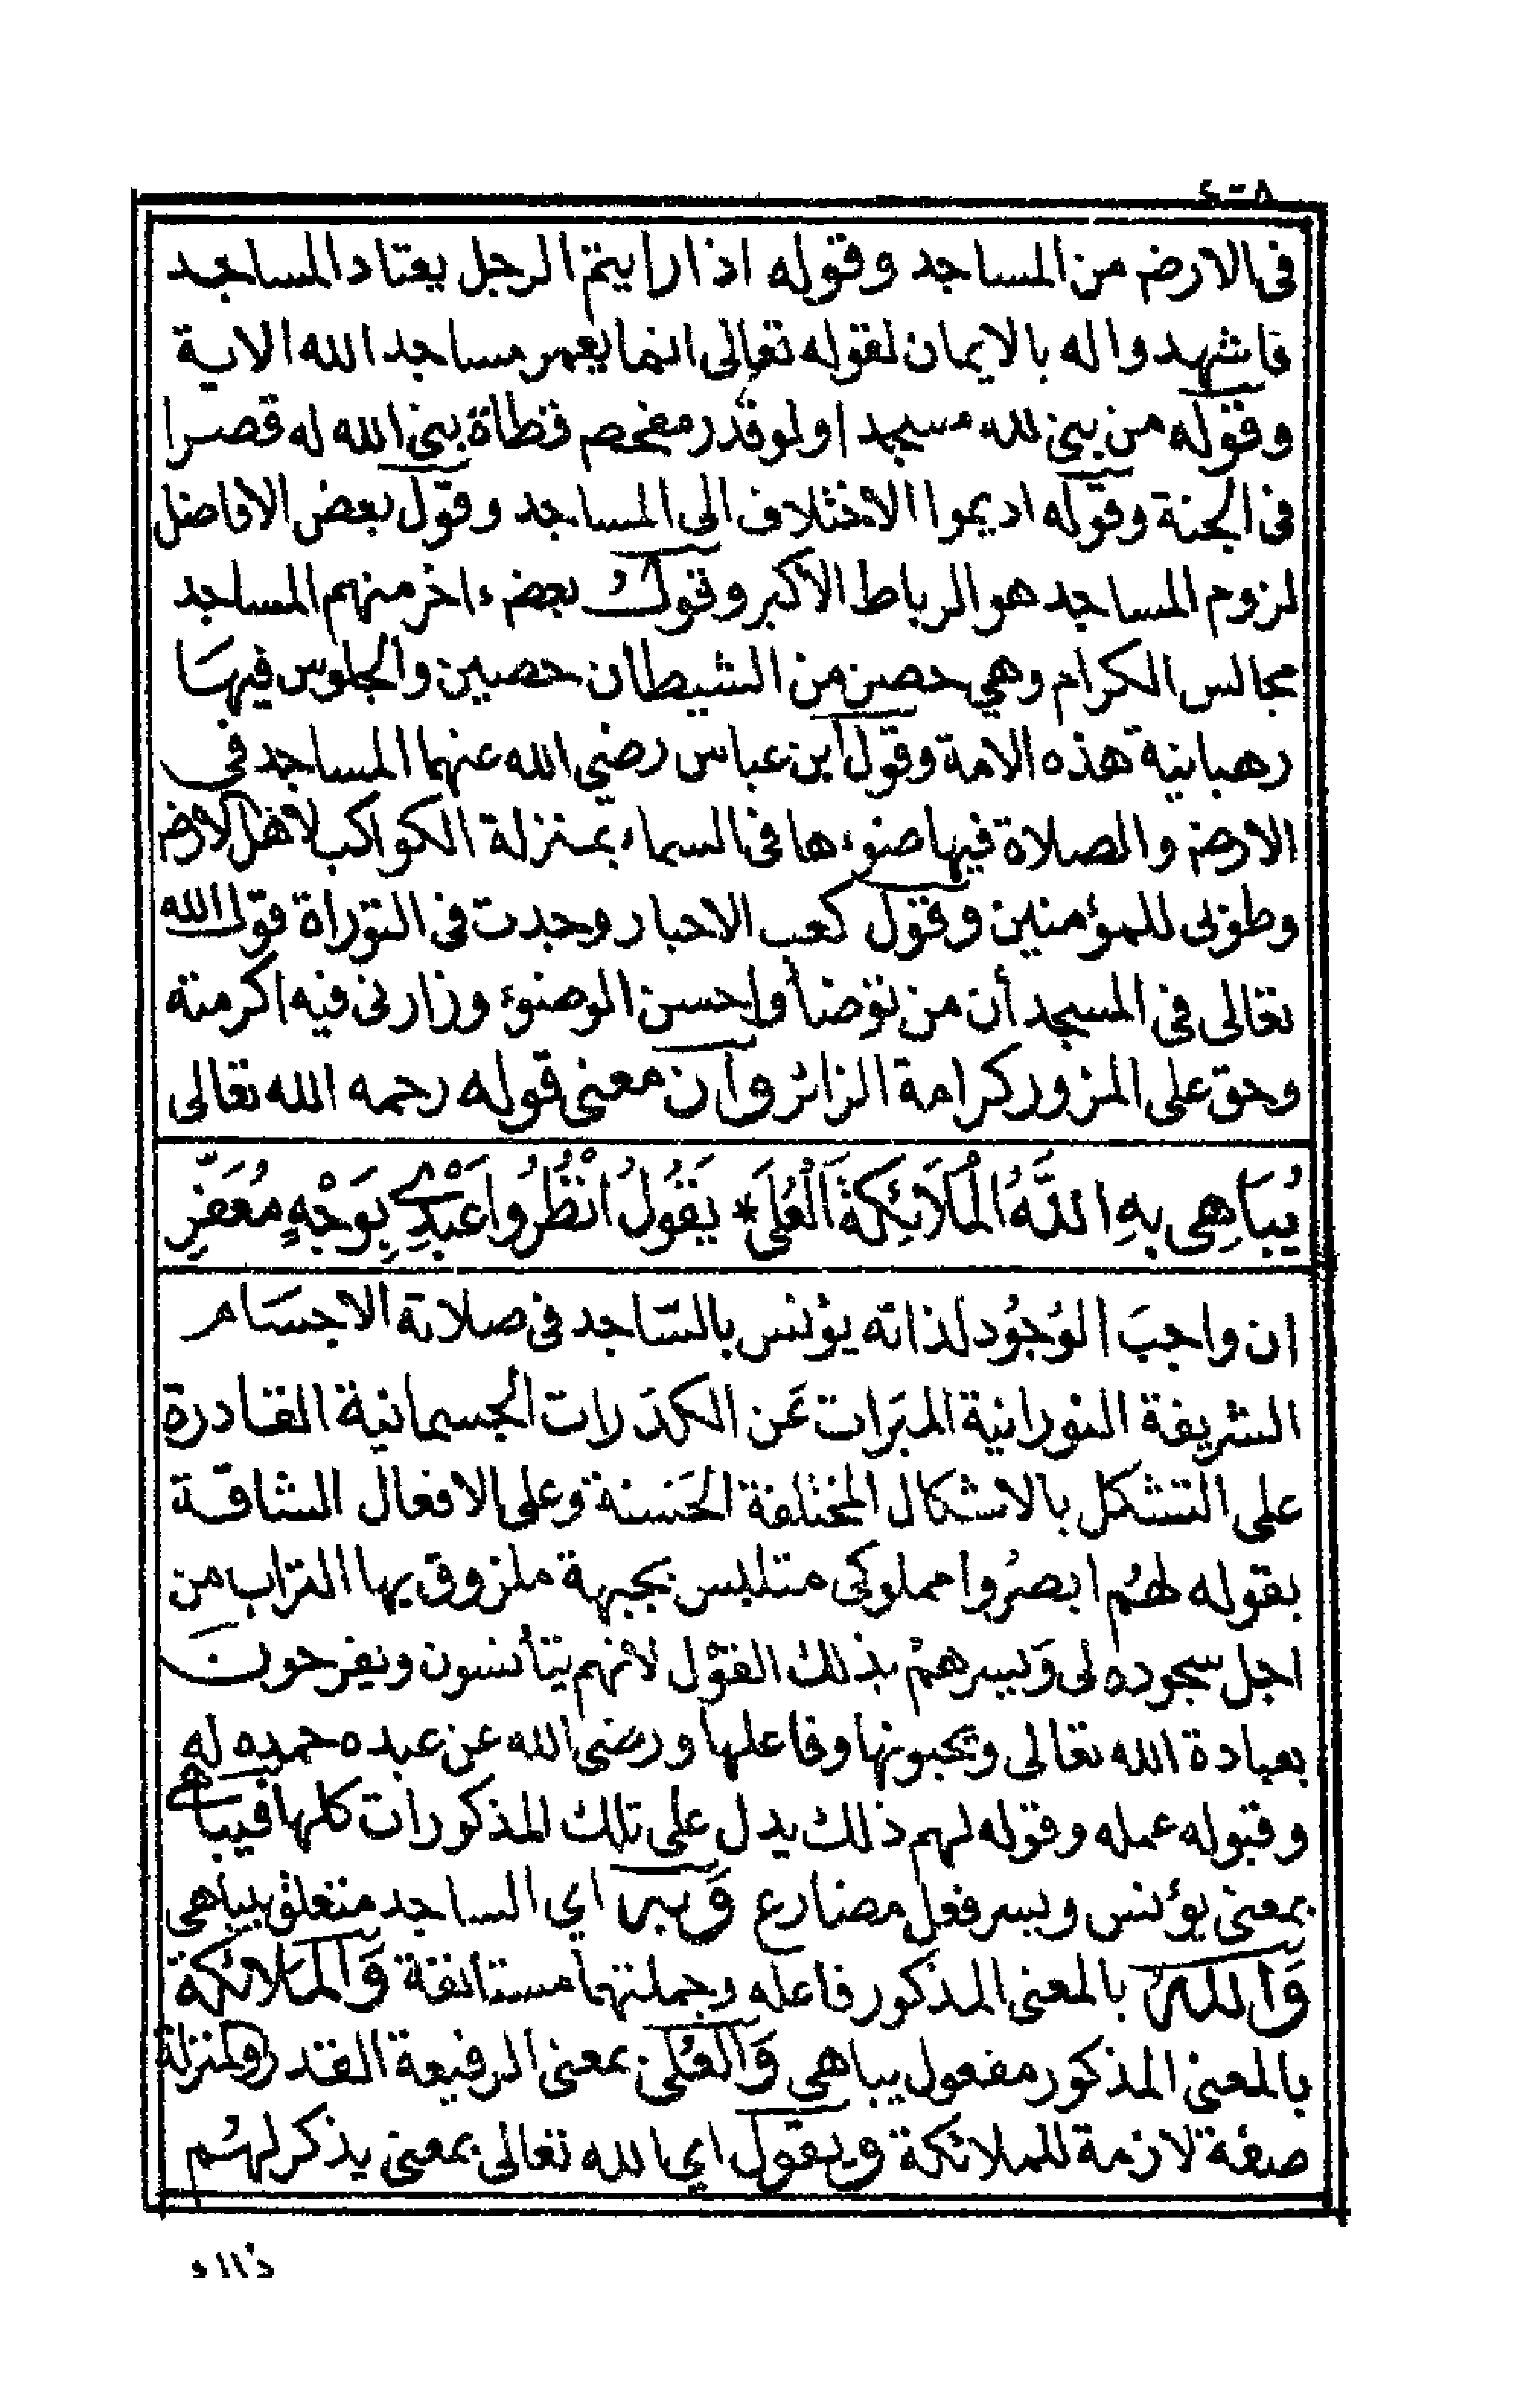 ٤٠٨
فى الارض من المساجد وقوله اذا رايتم الرجل يعتاد المساجد
فاشهدوا له بالايمان لقوله تعالى انما يعمر مساجد الله الاية
وقوله من بنى لله مسجدا ولو قدر مفحص قطاة بنى الله له قصرا
فى الجنة وقوله اديموا الاختلاف الى المساجد وقول بعض الافاضل
لزوم المساجد هو الرباط الأكبر وقول بعض ءاخر منهم المساجد
مجالس الكرام وهي حصن من الشيطان حصين والجلوس فيهَا
رهبانية هذه الامة وقول ابن عباس رضي الله عنهما المساجد فى
الارض والصلاة فيها ضوءها فى السماء بمنزلة الكواكب لاهل الارض
وطوبى للمؤمنين وقول كعب الاحبار وجدت فى التوراة قول الله
تعالى فى المسجد أن من توضأ واحسن الوضوء وزارنى فيه اكرمته
وحق على المزور كرامة الزائر وان معنى قوله رحمه الله تعالى
يُبَاهِى بِهِ اللَّهُ الْمَلَائِكَةَ الْعُلَى * يَقُولُ انْظُرُوا عَبْدِي بِوَجْهٍ مُعَفَّرِ
ان واجبَ الوُجُود لذاته يؤنس بالسّاجد فى صلاته الاجسَام
الشريفة النورانية المبَرات عَن الكدَرات الجسمانية القادرة
على التشكل بالاشكال المختلفة الحَسنة وعلى الافعال الشاقة
بقوله لهُم ابصرُوا مملوكى متلبس بجبهة ملزوق بها التراب من
اجل سجوده لى وَيسرهمْ بذلك القوْل لانهم يتأنسون ويفرحون
بعبادة الله تعالى ويحبونها وفاعلها ورضى الله عن عبده حمده له
وقبوله عمله وقوله لهم ذلك يدل على تلك المذكورات كلها فيباهي
بمعنى يؤنس ويسر فعل مضارع وَبه اي الساجد متعلق بيباهى
وَاللهُ بالمعنى المذكور فاعله وجملتهما مستانفة وَالمَلائكة
بالمعنى المذكور مفعول يباهي وَالعُلى بمعنى الرفيعة القدر والمنزلة
صفة لازمة للملائكة ويقول اي الله تعالى بمعنى يذكر لهُم